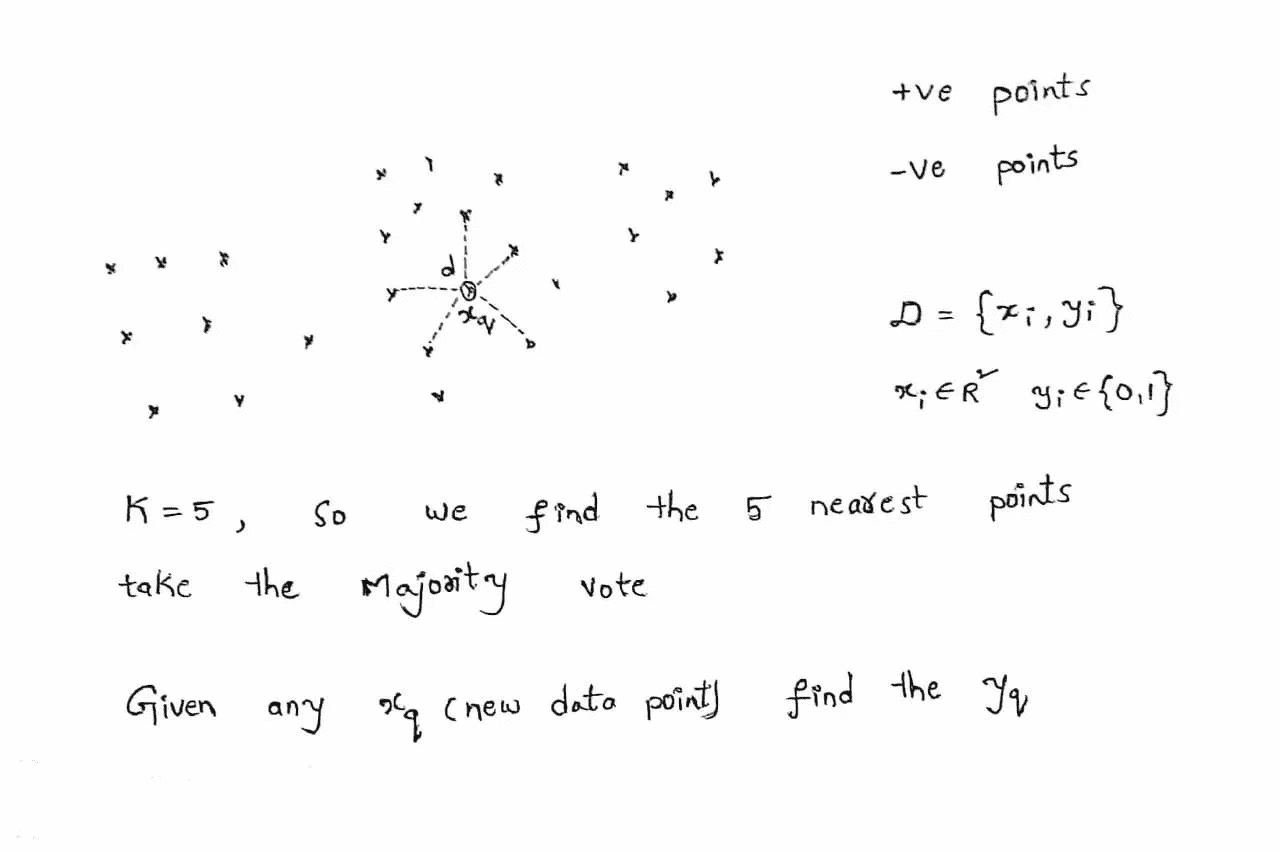 +ve points
-ve points
d
xq
D = {xi, yi}
xi ∈ R² yi ∈ {0,1}
K = 5, So we find the 5 nearest points
take the Majority vote
Given any xq (new data point) find the yq